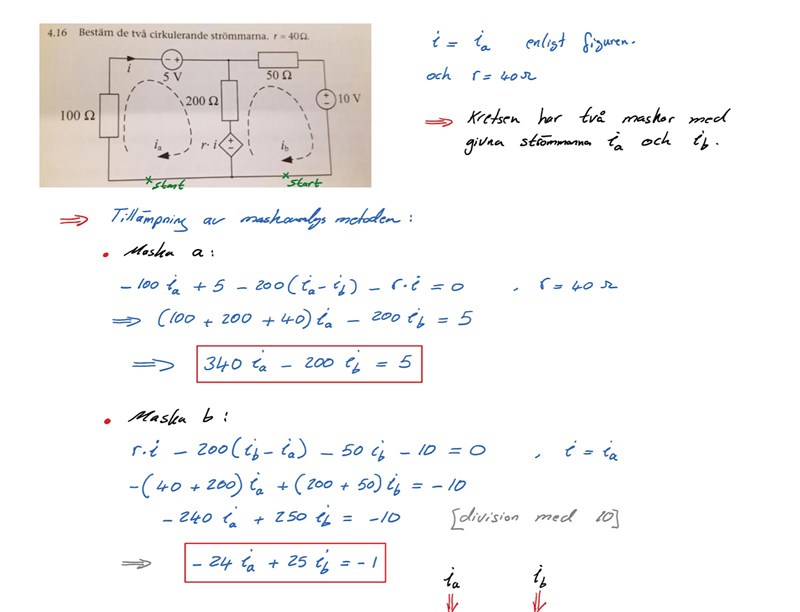 4.16 Bestäm de två cirkulerande strömmarna. r = 40Ω.
i
5 V
50 Ω
200 Ω
10 V
100 Ω
i_a
r · i
i_b
start
start
i = i_a enligt figuren.
och r = 40Ω
⇒ Kretsen har två maskor med
givna strömmarna i_a och i_b.
⇒ Tillämpning av maskanalys metoden:
• Maska a:
-100 i_a + 5 - 200(i_a - i_b) - r·i = 0 , r = 40Ω
⇒ (100 + 200 + 40) i_a - 200 i_b = 5
⇒ 340 i_a - 200 i_b = 5
• Maska b:
r·i - 200(i_b - i_a) - 50 i_b - 10 = 0 , i = i_a
-(40 + 200) i_a + (200 + 50) i_b = -10
-240 i_a + 250 i_b = -10 [division med 10]
⇒ -24 i_a + 25 i_b = -1
i_a i_b